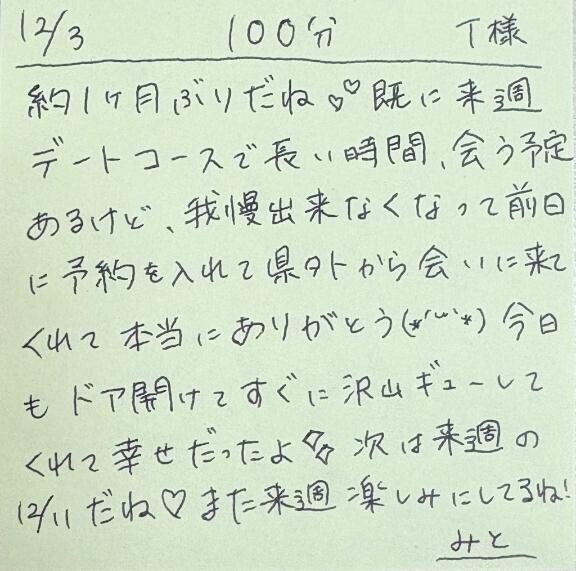 12/3 100分 T様
約1ヶ月ぶりだね♡♡既に来週
デートコースで長い時間、会う予定
あるけど、我慢出来なくなって前日
に予約を入れて県外から会いに来て
くれて本当にありがとう(*´꒳`*)今日
もドア開けてすぐに沢山ギューして
くれて幸せだったよ 次は来週の
12/11だね♡また来週楽しみにしてるね!
みと